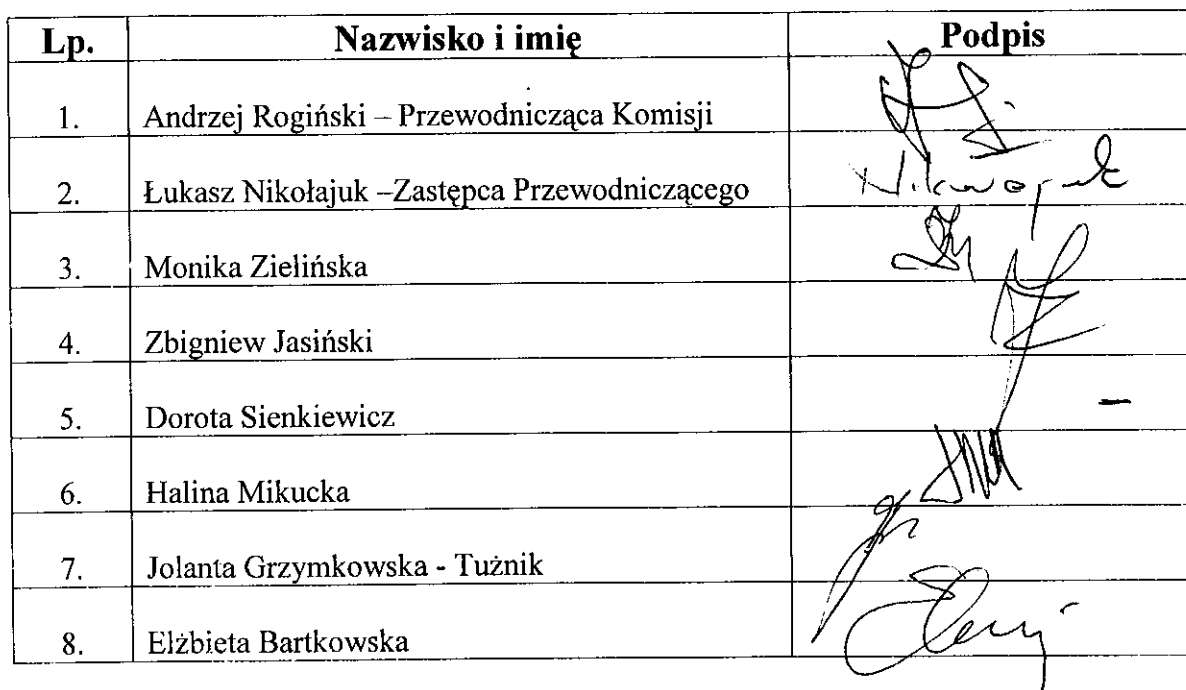 Lp. Nazwisko i imię Podpis
1. Andrzej Rogiński – Przewodnicząca Komisji
2. Łukasz Nikołajuk –Zastępca Przewodniczącego
3. Monika Zielińska
4. Zbigniew Jasiński
5. Dorota Sienkiewicz –
6. Halina Mikucka
7. Jolanta Grzymkowska - Tużnik
8. Elżbieta Bartkowska